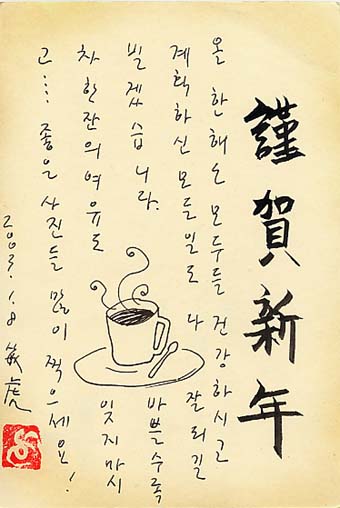 謹賀新年
올 한해는 모두들 건강하시고
계획하신 모든일도 다 잘되길
빌겠습니다. 바쁠수록
차 한잔의 여유도 잊지마시
고... 좋은 사진들 많이 찍으세요!
2003.1.8 敏虎